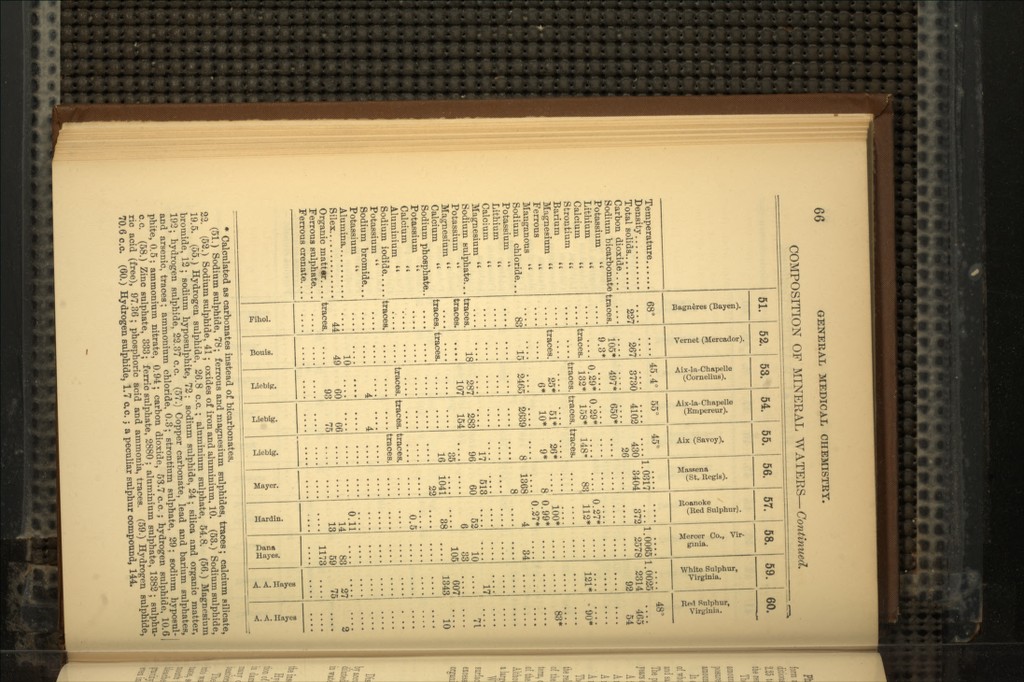 66
GENERAL MEDICAL CHEMISTRY.
COMPOSITION OF MINERAL WATERS—Continued.
51. 52. 53. 54. 55. 56. 57. 58. 59. 60.
Bagnères (Bayen). Vernet (Mercador). Aix-la-Chapelle (Cornelius). Aix-la-Chapelle (Empereur). Aix (Savoy). Massena (St. Regis). Roanoke (Red Sulphur). Mercer Co., Virginia. White Sulphur, Virginia. Red Sulphur, Virginia.
Temperature..... 68° .... 45.4° 55° 45° .... .... .... .... 48°
Density..... .... .... .... .... .... 1.0317 .... 1.0065 1.0025 ....
Total solids.. 227 267 3730 4102 430 3404 372 2578 2314 465
Carbon dioxide.. .... .... .... .... 26 .... .... .... 92 54
Sodium bicarbonate traces. 105* 497* 650* .... .... .... .... .... ....
Potassium " .... 9.3* .... .... .... .... .... .... .... ....
Lithium " .... .... 0.29* 0.29* .... .... 0.27* .... .... ....
Calcium " .... traces. 132* 158* 148* 83 112* .... 121* 90*
Strontium " .... .... traces. traces. traces. .... .... .... .... ....
Barium " .... .... .... .... .... .... .... .... .... ....
Magnesium " .... traces. 25* 51* 26* .... 100* .... .... 83*
Ferrous " .... .... 6* 10* 9* 8 0.99* .... .... ....
Manganous " .... .... .... .... .... .... 0.27* .... .... ....
Sodium chloride... 83 15 2465 2639 8 1368 4 34 .... ....
Potassium " .... .... .... .... .... 8 .... .... .... ....
Lithium " .... .... .... .... .... .... .... .... .... ....
Calcium " .... .... .... .... 17 513 .... .... 17 ....
Magnesium " .... .... .... .... .... .... .... .... .... ....
Sodium sulphate.. traces. 18 287 283 96 60 52 10 .... 71
Potassium " traces. .... 107 154 .... .... 6 33 .... ....
Calcium " .... .... .... .... 35 .... .... 105 607 ....
Magnesium " .... .... .... .... 16 1041 38 .... 1343 10
Sodium phosphate.. .... .... .... .... .... 22 .... .... .... ....
Potassium " .... .... .... .... .... .... 0.5 .... .... ....
Calcium " .... .... .... .... .... .... .... .... .... ....
Aluminium " .... .... traces. traces. traces. .... .... .... .... ....
Sodium iodide.... traces. .... .... .... traces. .... .... .... .... ....
Potassium " .... .... .... .... .... .... .... .... .... ....
Sodium bromide.. .... .... 4 4 .... .... .... .... .... ....
Potassium " .... .... .... .... .... .... 0.11 .... .... ....
Alumina..... .... 10 .... .... .... .... 14 83 27 2
Silex..... 44 49 60 66 .... .... 13 59 75 ....
Organic matter.. traces. .... 93 75 .... .... .... 1173 .... ....
Ferrous sulphate.. .... .... .... .... .... .... .... .... .... ....
Ferrous crenate... .... .... .... .... .... .... .... .... .... ....
Filhol. Bouis. Liebig. Liebig. Liebig. Mayer. Hardin. Dana Hayes. A. A. Hayes A. A. Hayes
* Calculated as carbonates instead of bicarbonates.
(51.) Sodium sulphide, 78; ferrous and magnesium sulphides, traces; calcium silicate,
22. (52.) Sodium sulphide, 41; oxides of iron and aluminium, 10. (53.) Sodium sulphide,
19.5. (55.) Hydrogen sulphide, 26.8 c.c.; aluminium sulphate, 54.8. (56.) Magnesium
bromide, 12; sodium hyposulphite, 72; sodium sulphide, 24; silica and organic matter,
192; hydrogen sulphide, 22.37 c.c. (57.) Copper carbonate, lead and barium sulphates,
and arsenic, traces; ammonium chloride, 0.3; strontium sulphate, 29; sodium hyposul-
phite, 0.5; ammonium nitrate, 0.94; carbon dioxide, 53.7 c.c.; hydrogen sulphide, 10.6
c.c. (58.) Zinc sulphate, 333; ferric sulphate, 2880; aluminium sulphate, 1382; sulphu-
ric acid (free), 97.36; phosphoric acid and ammonia, traces. (59.) Hydrogen sulphide,
70.6 c.c. (60.) Hydrogen sulphide, 1.7 c.c.; a peculiar sulphur compound, 144.